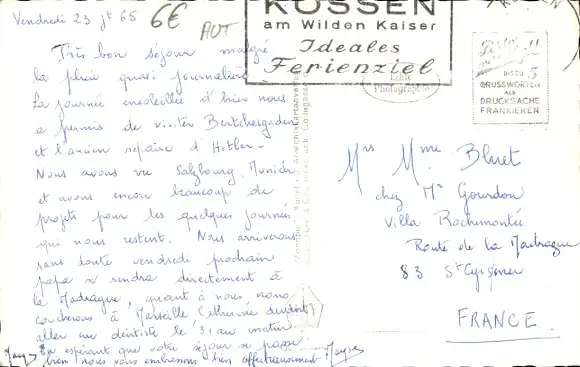 Vendredi 23 jt 65
6€
AUT
KÖSSEN
am Wilden Kaiser
Ideales
Ferienziel
BIS ZU 5
GRUSSWORTEN
ALS
DRUCKSACHE
FRANKIEREN
Echte
Photographie
Très bon séjour malgré
la pluie quasi journalière
La journée ensoleillée d'hier nous
a permis de visiter Bertchesgaden
et l'ancien repaire d'Hitler-
Nous avons vu Salzbourg, Munich
et avons encore beaucoup de
projets pour les quelques journées
qui nous restent. Nous arriverons
sans doute vendredi prochain
papa se rendra directement à
la Madrague, quant à nous, nous
coucherons à Marseille devant
aller au dentiste le 31 au matin.
En espérant que votre séjour se passe
bien nous vous embrassons bien affectueusement
Mrs Mme Bluet
chez Mr Gourdon
Villa Rochemontée
Route de la Madrague
83 St Cyr s/mer
FRANCE.